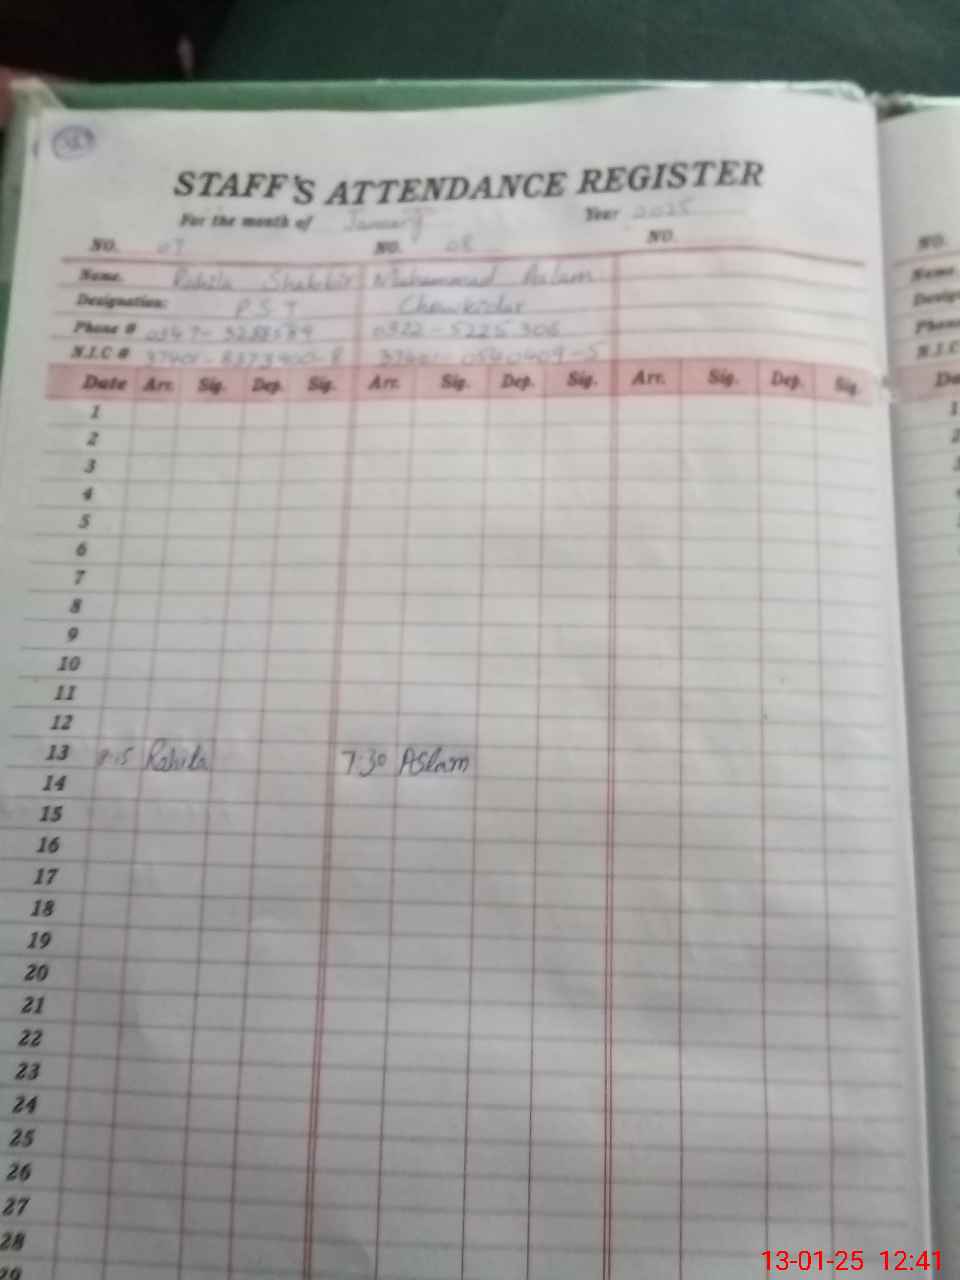 STAFF'S ATTENDANCE REGISTER
For the month of January Year 2025
NO. 07 NO. 08 NO.
Name. Rahila Shabbir Muhammad Aslam
Designation: P S T Chowkidar
Phone # 0322-5225306
N.I.C #
Date Arr. Sig. Dep. Sig. Arr. Sig. Dep. Sig. Arr. Sig. Dep. Sig.
1
2
3
4
5
6
7
8
9
10
11
12
13 Rahila 7:30 Aslam
14
15
16
17
18
19
20
21
22
23
24
25
26
27
28
29
NO.
Name
Phone
N.I.C
13-01-25 12:41